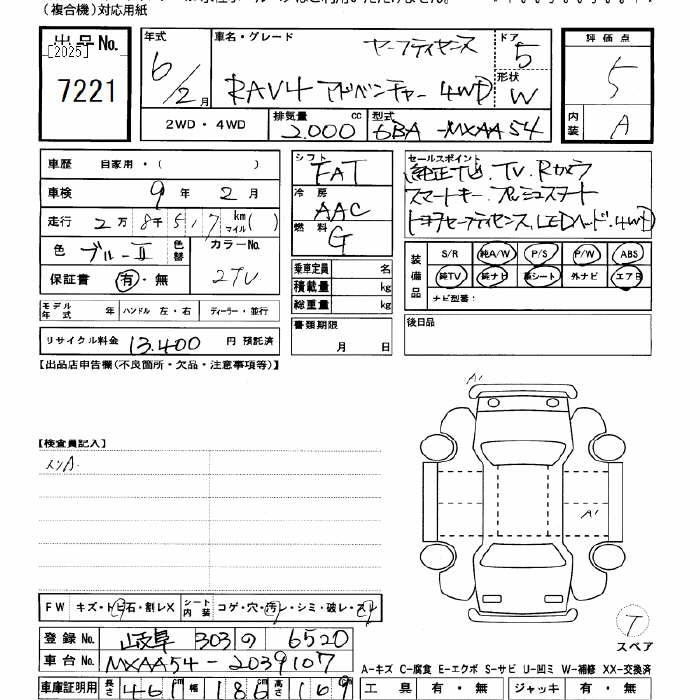 (複合機)対応用紙
出品No.
[2025]
7221
年式
6/2月
車名・グレード
セーフティセンス
RAV4 アドベンチャー 4WD
ドア
5
形状
W
評価点
5
内装
A
2WD・4WD
排気量
2.000 cc
型式
6BA-MXAA54
車歴 自家用・( )
車検 9年 2月
走行 2万8千517 km マイル( )
色 ブルーⅡ 色替
カラーNo.
2TU
保証書 有・無
モデル年式 年 ハンドル 左・右 ディーラー・並行
リサイクル料金 13.400 円 預託済
シフト FAT
冷房 AAC
燃料 G
乗車定員 名
積載量 kg
総重量 kg
書類期限
月 日
セールスポイント
純正ナビ.TV.Rカメラ
スマートキー.プッシュスタート
トヨタセーフティセンス.LEDヘッド.4WD
装備品
S/R 純A/W P/S P/W ABS
純TV 純ナビ 革シート 外ナビ エアB
ナビ型番:
後日品
【出品店申告欄(不良箇所・欠品・注意事項等)】
【検査員記入】
メンA.
A'
A'
FW キズ・トビ石・割レX
シート内装 コゲ・穴・汚レ・シミ・破レ・スレ
登録No. 岐阜 303 の 6520
車台No. MXAA54-2039107
車庫証明用 長さ 461cm 幅 186cm 高さ 169cm
T
スペア
A-キズ C-腐食 E-エクボ S-サビ U-凹ミ W-補修 XX-交換済
工具 有・無 ジャッキ 有・無